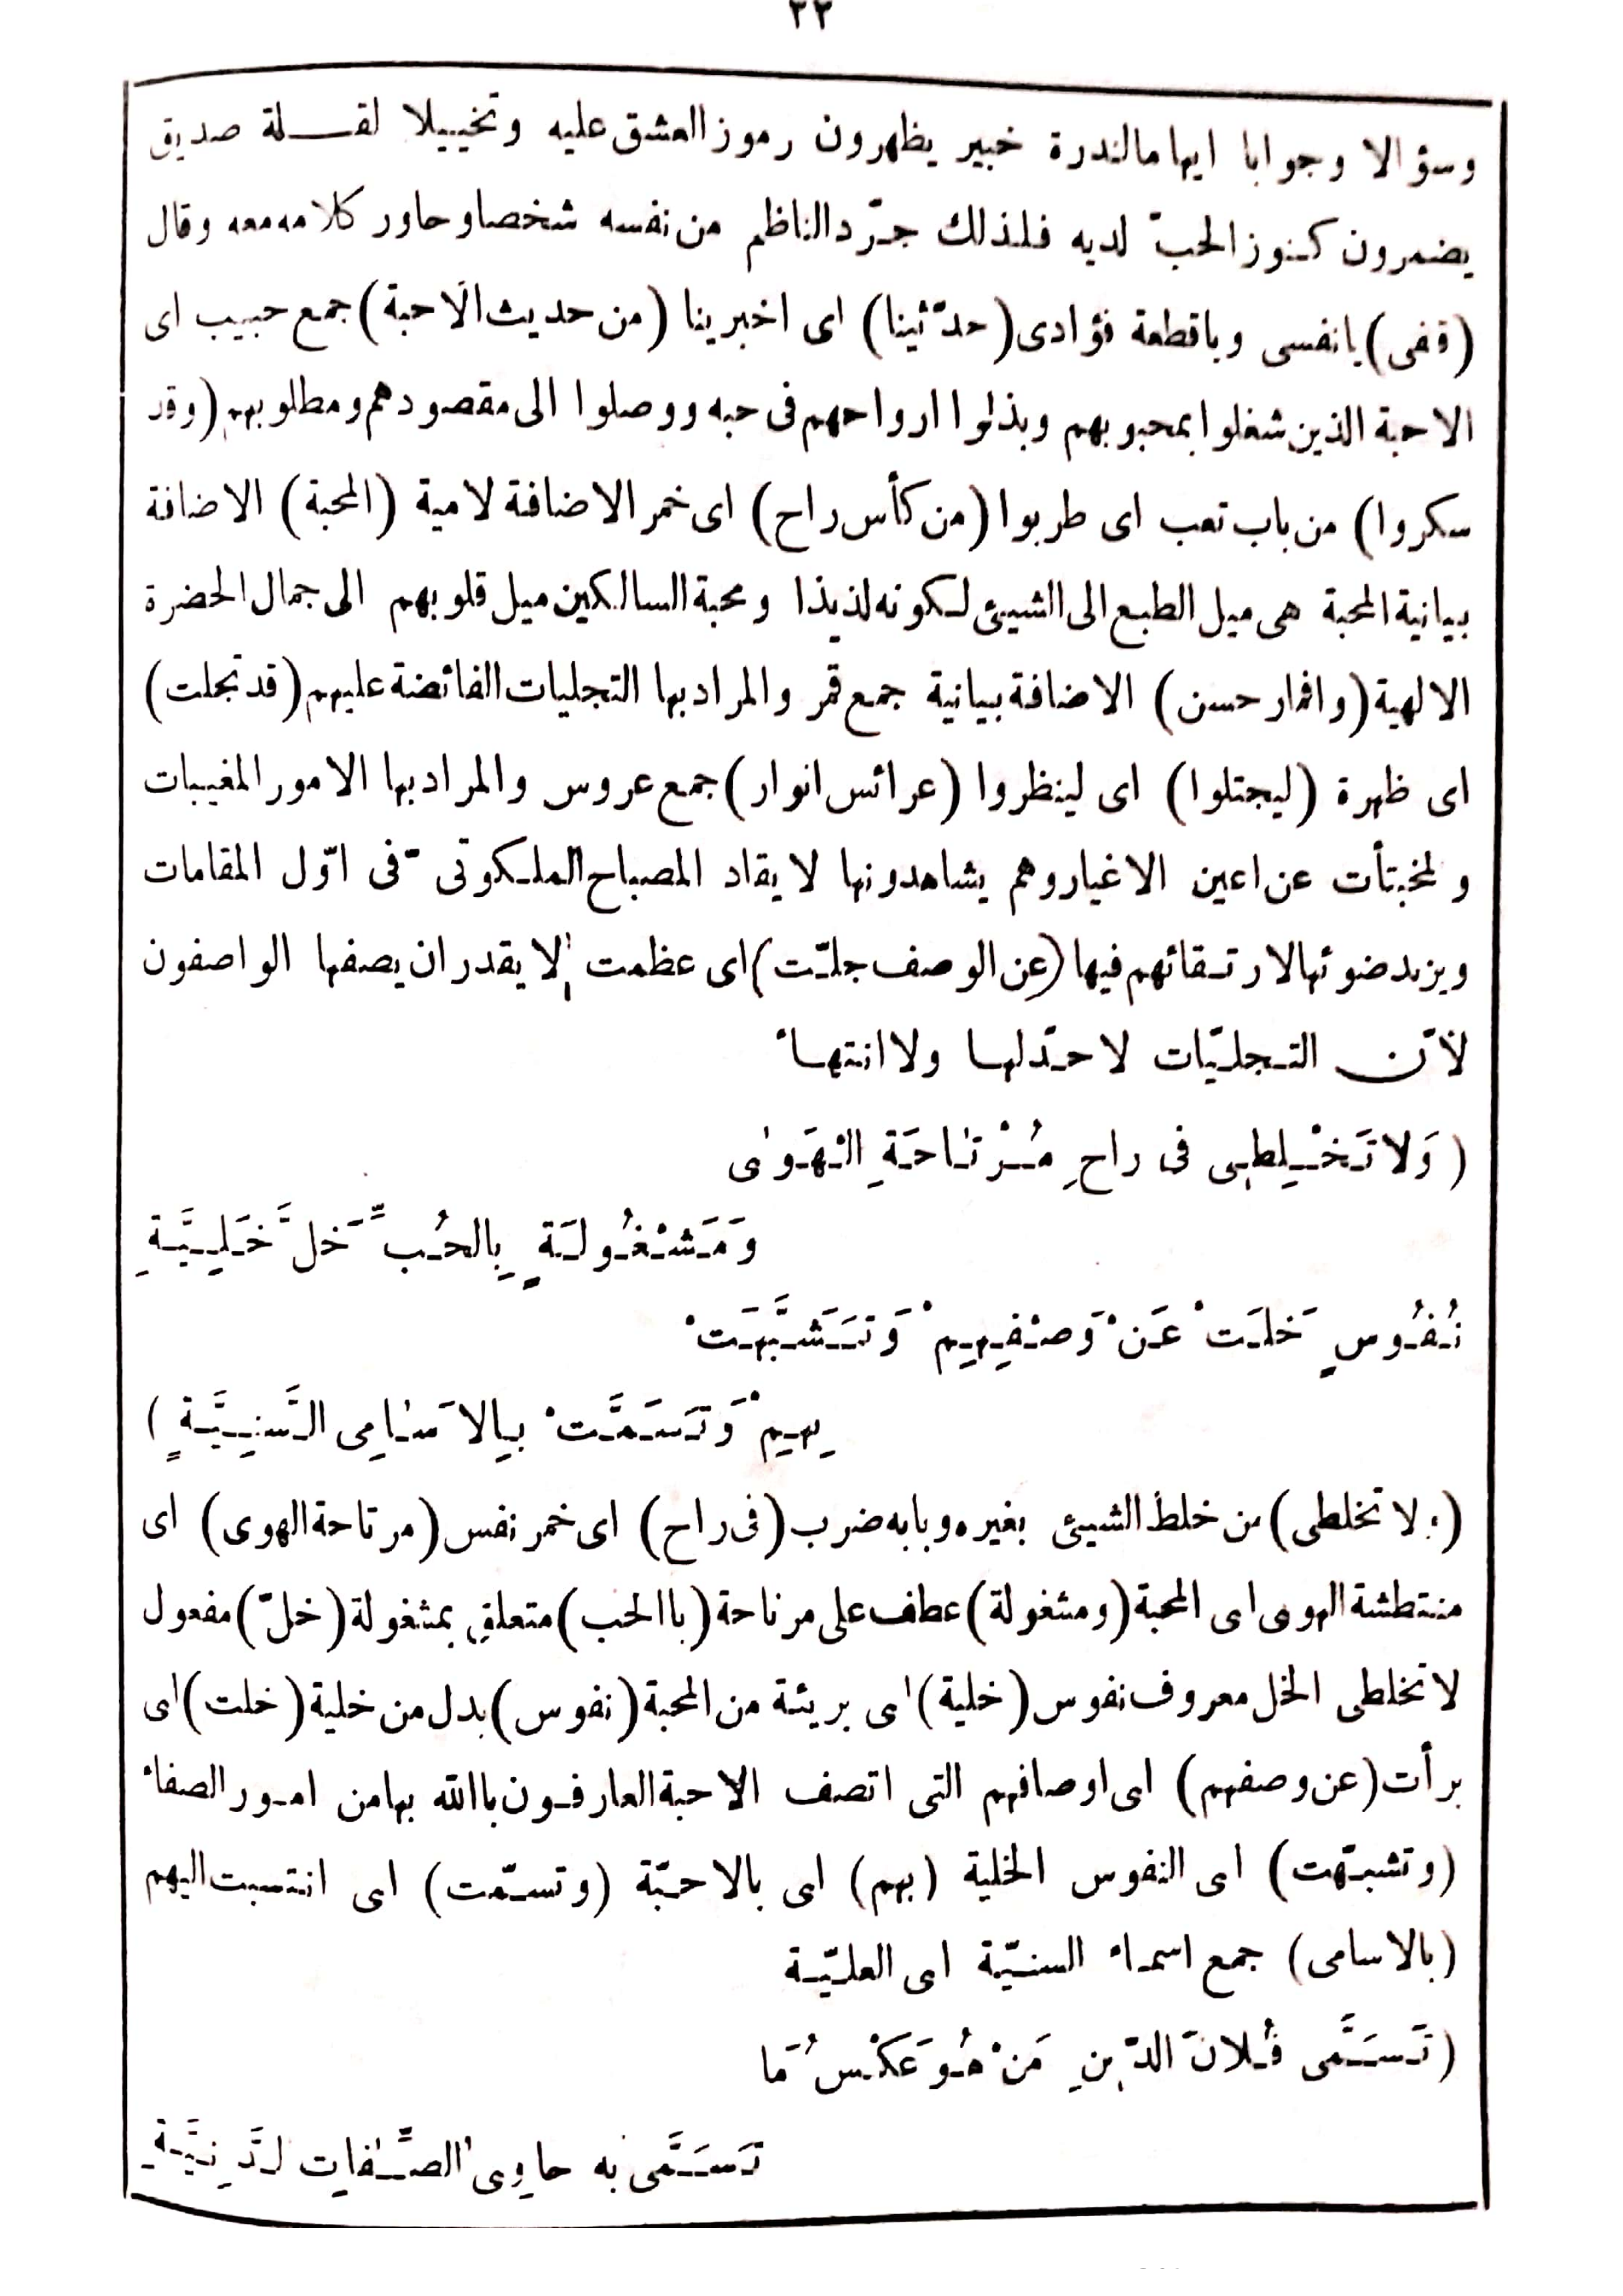 ٣٣
وسؤالا وجوابا ايهاما لندرة خبير يظهرون رموز العشق عليه وتخييلا لقلة صديق
يضمرون كنوز الحبّ لديه فلذلك جرّد الناظم من نفسه شخصا وحاور كلامه معه وقال
(قفى) يانفسى وياقطعة فؤادى (حدّثينا) اى اخبرينا (من حديث الاحبة) جمع حبيب اى
الاحبة الذين شغلوا بمحبوبهم وبذلوا ارواحهم فى حبه ووصلوا الى مقصودهم ومطلوبهم (وقد
سكروا) من باب تعب اى طربوا (من كأس راح) اى خمر الاضافة لامية (المحبة) الاضافة
بيانية المحبة هى ميل الطبع الى الشيئ لكونه لذيذا ومحبة السالكين ميل قلوبهم الى جمال الحضرة
الالهية (واقمار حسن) الاضافة بيانية جمع قمر والمراد بها التجليات الفائضة عليهم (قد تجلت)
اى ظهرة (ليجتلوا) اى لينظروا (عرائس انوار) جمع عروس والمراد بها الامور المغيبات
ولمخبتأت عن اعين الاغيار وهم يشاهدونها لايقاد المصباح الملكوتى فى اوّل المقامات
ويزيد ضوئها لارتقائهم فيها (عن الوصف جلّت) اى عظمت لا يقدر ان يصفها الواصفون
لأنّ التجليّات لا حدّ لها ولا انتهاء
(وَلا تَخْلِطِى فى راحِ مُرْتاحَةِ الْهَوٰى
وَمَشْغُولَةٍ بِالحُبِّ خَلَّ خَلِيَّةِ
نُفُوسٍ خَلَتْ عَنْ وَصْفِهِمْ وَتَشَبَّهَتْ
بِهِمْ وَتَسَمَّتْ بِالاَسٰامِى السَّنِيَّةِ)
(لا تخلطى) من خلط الشيئ بغيره وبابه ضرب (فى راح) اى خمر نفس (مرتاحة الهوى) اى
منتطشة الهوى اى المحبة (ومشغولة) عطف على مرتاحة (باالحب) متعلق بمشغولة (خلّ) مفعول
لا تخلطى الخل معروف نفوس (خلية) اى بريئة من المحبة (نفوس) بدل من خلية (خلت) اى
برأت (عن وصفهم) اى اوصافهم التى اتصف الاحبة العارفون باالله بها من امور الصفاء
(وتشبّهت) اى النفوس الخلية (بهم) اى بالاحبّة (وتسمّت) اى انتسبت اليهم
(بالاسامى) جمع اسماء السنيّة اى العليّة
(تَسَمَّى فُلانَ الدّينِ مَنْ هُوَ عَكْسُ مَا
تَسَمَّى به حاوِى الصِّفاتِ لدَّنِيَّةِ